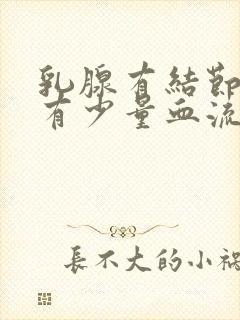 乳腺有結節
有少量血流
長不大的小禍